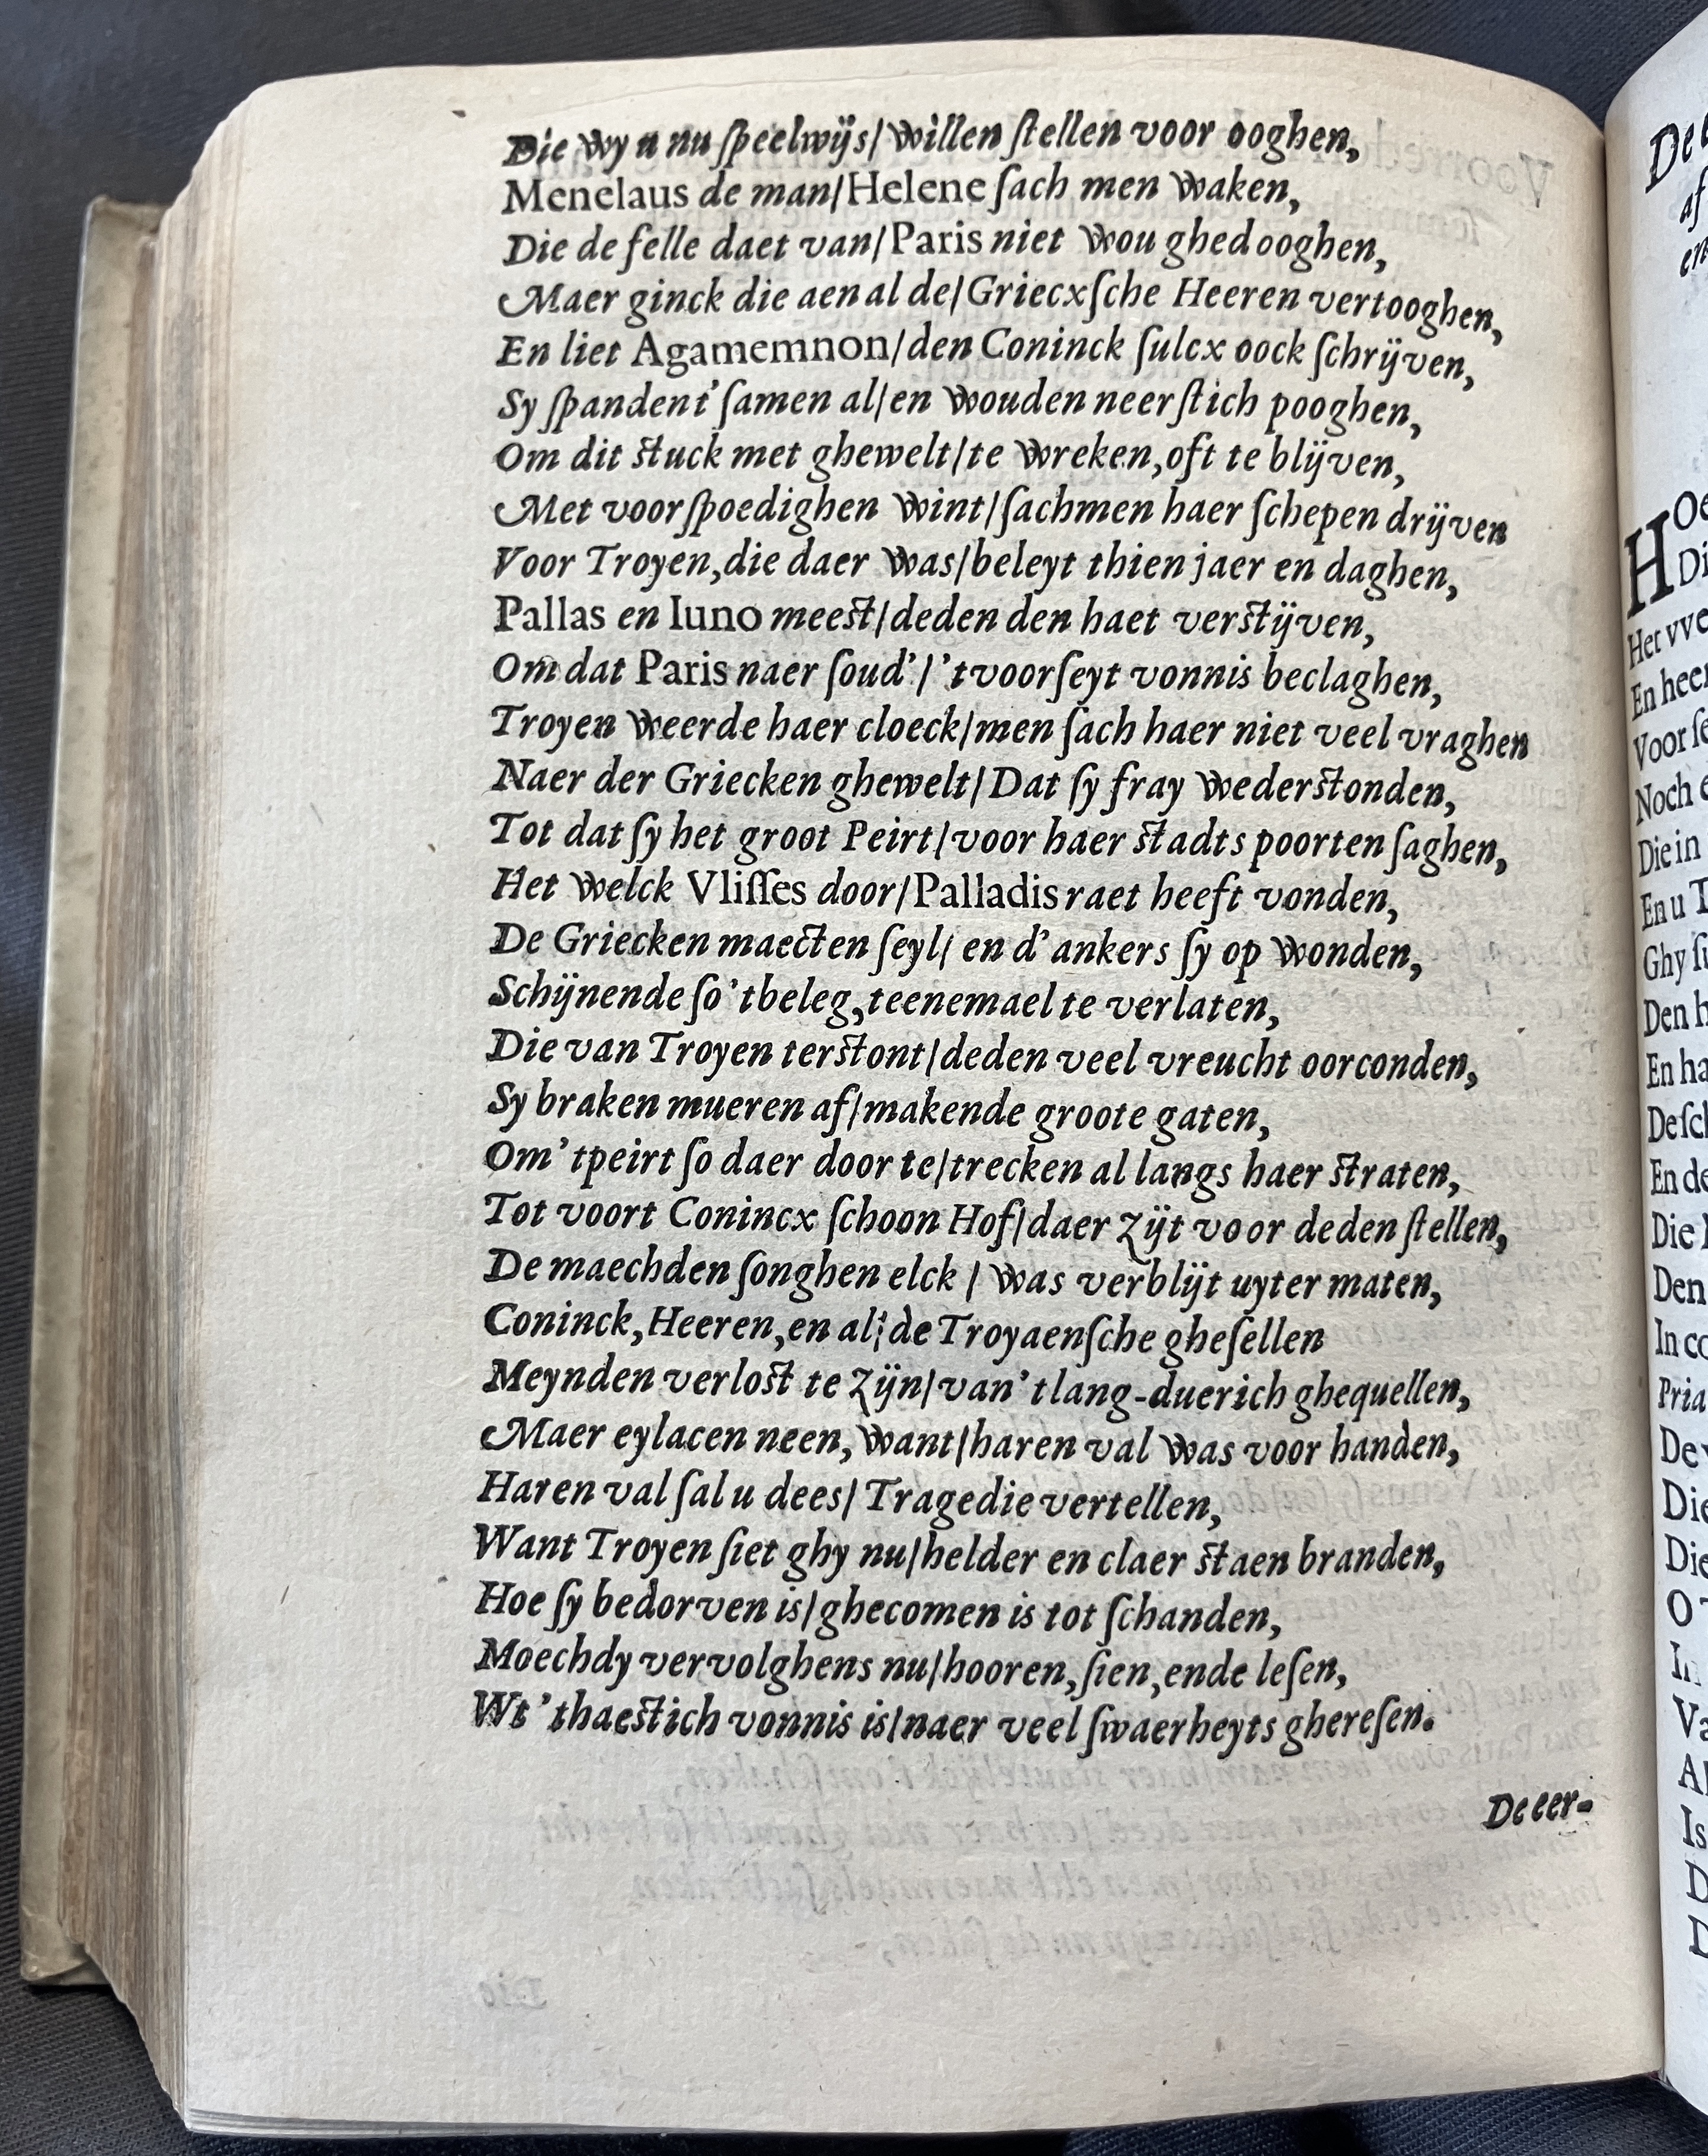 Die wy u nu ſpeelwijs/ willen ſtellen voor ooghen,
Menelaus de man/ Helene ſach men waken,
Die de felle daet van/ Paris niet wou ghedooghen,
Maer ginck die aen al de/ Griecxſche Heeren vertooghen,
En liet Agamemnon/ den Coninck ſulcx oock ſchrijven,
Sy ſpanden t' ſamen al/ en wouden neerſtich pooghen,
Om dit ſtuck met ghewelt/ te wreken, oft te blijven,
Met voorſpoedighen wint/ ſachmen haer ſchepen drijven
Voor Troyen, die daer was/ beleyt thien jaer en daghen,
Pallas en Iuno meeſt/ deden den haet verſtijven,
Om dat Paris naer ſoud'/ 't voorſeyt vonnis beclaghen,
Troyen weerde haer cloeck/ men ſach haer niet veel vraghen
Naer der Griecken ghewelt/ Dat ſy fray wederſtonden,
Tot dat ſy het groot Peirt/ voor haer ſtadts poorten ſaghen,
Het welck Vliſſes door/ Palladis raet heeft vonden,
De Griecken maecten ſeyl/ en d' ankers ſy op wonden,
Schijnende ſo 't beleg, teenemael te verlaten,
Die van Troyen terſtont/ deden veel vreucht oorconden,
Sy braken mueren af/ makende groote gaten,
Om 't peirt ſo daer door te/ trecken al langs haer ſtraten,
Tot voort Conincx ſchoon Hof/ daer zijt voor deden ſtellen,
De maechden ſonghen elck / was verblijt uyter maten,
Coninck, Heeren, en al/ de Troyaenſche gheſellen
Meynden verloſt te zijn/ van 't lang-duerich ghequellen,
Maer eylacen neen, want/ haren val was voor handen,
Haren val ſal u dees/ Tragedie vertellen,
Want Troyen ſiet ghy nu/ helder en claer ſtaen branden,
Hoe ſy bedorven is/ ghecomen is tot ſchanden,
Moechdy vervolghens nu/ hooren, ſien, ende leſen,
Wt 't haeſtich vonnis is/ naer veel ſwaerheyts ghereſen.
De eer-
De
af
en
HOe
Di
Het vve
En heer
Voor ſe
Noch e
Die in
En u T
Ghy ſu
Den h
En ha
De ſch
En de
Die
Den
In co
Pria
De v
Die
Die
O
In
Va
Al
Is
D
D